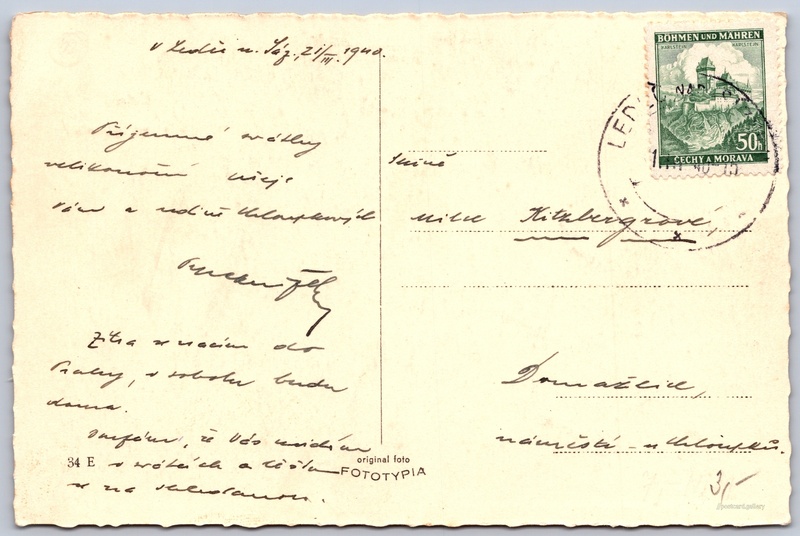 V Ledči n. Sáz. 21/III. 1940.
Příjemné svátky
velikonoční přeje
Vám a rodině Chloupkových
Zítra se vracím do
Prahy, v sobotu budu
doma.
Doufám, že Vás uvidím
o svátcích a těším
se na shledanou.
34 E
original foto
FOTOTYPIA
BÖHMEN UND MÄHREN
KARLSTEIN KARLŠTEJN
50h
ČECHY A MORAVA
LEDEČ NAD
Slečně
Kitzbergrové,
Domažlice,
náměstí - u Chloupků.
3,-